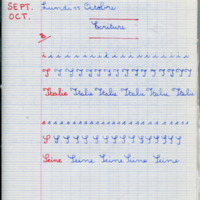 SEPT. Lundi 11 Octobre
OCT.
Écriture
i i i i i i i i i i i i i i i i
I I I I I I I I I I I I I I
Italie Italie Italie Italie Italie Italie
s s s s s s s s s s s s s s s s
S S S S S S S S S S S S S S
Seine Seine Seine Seine Seine